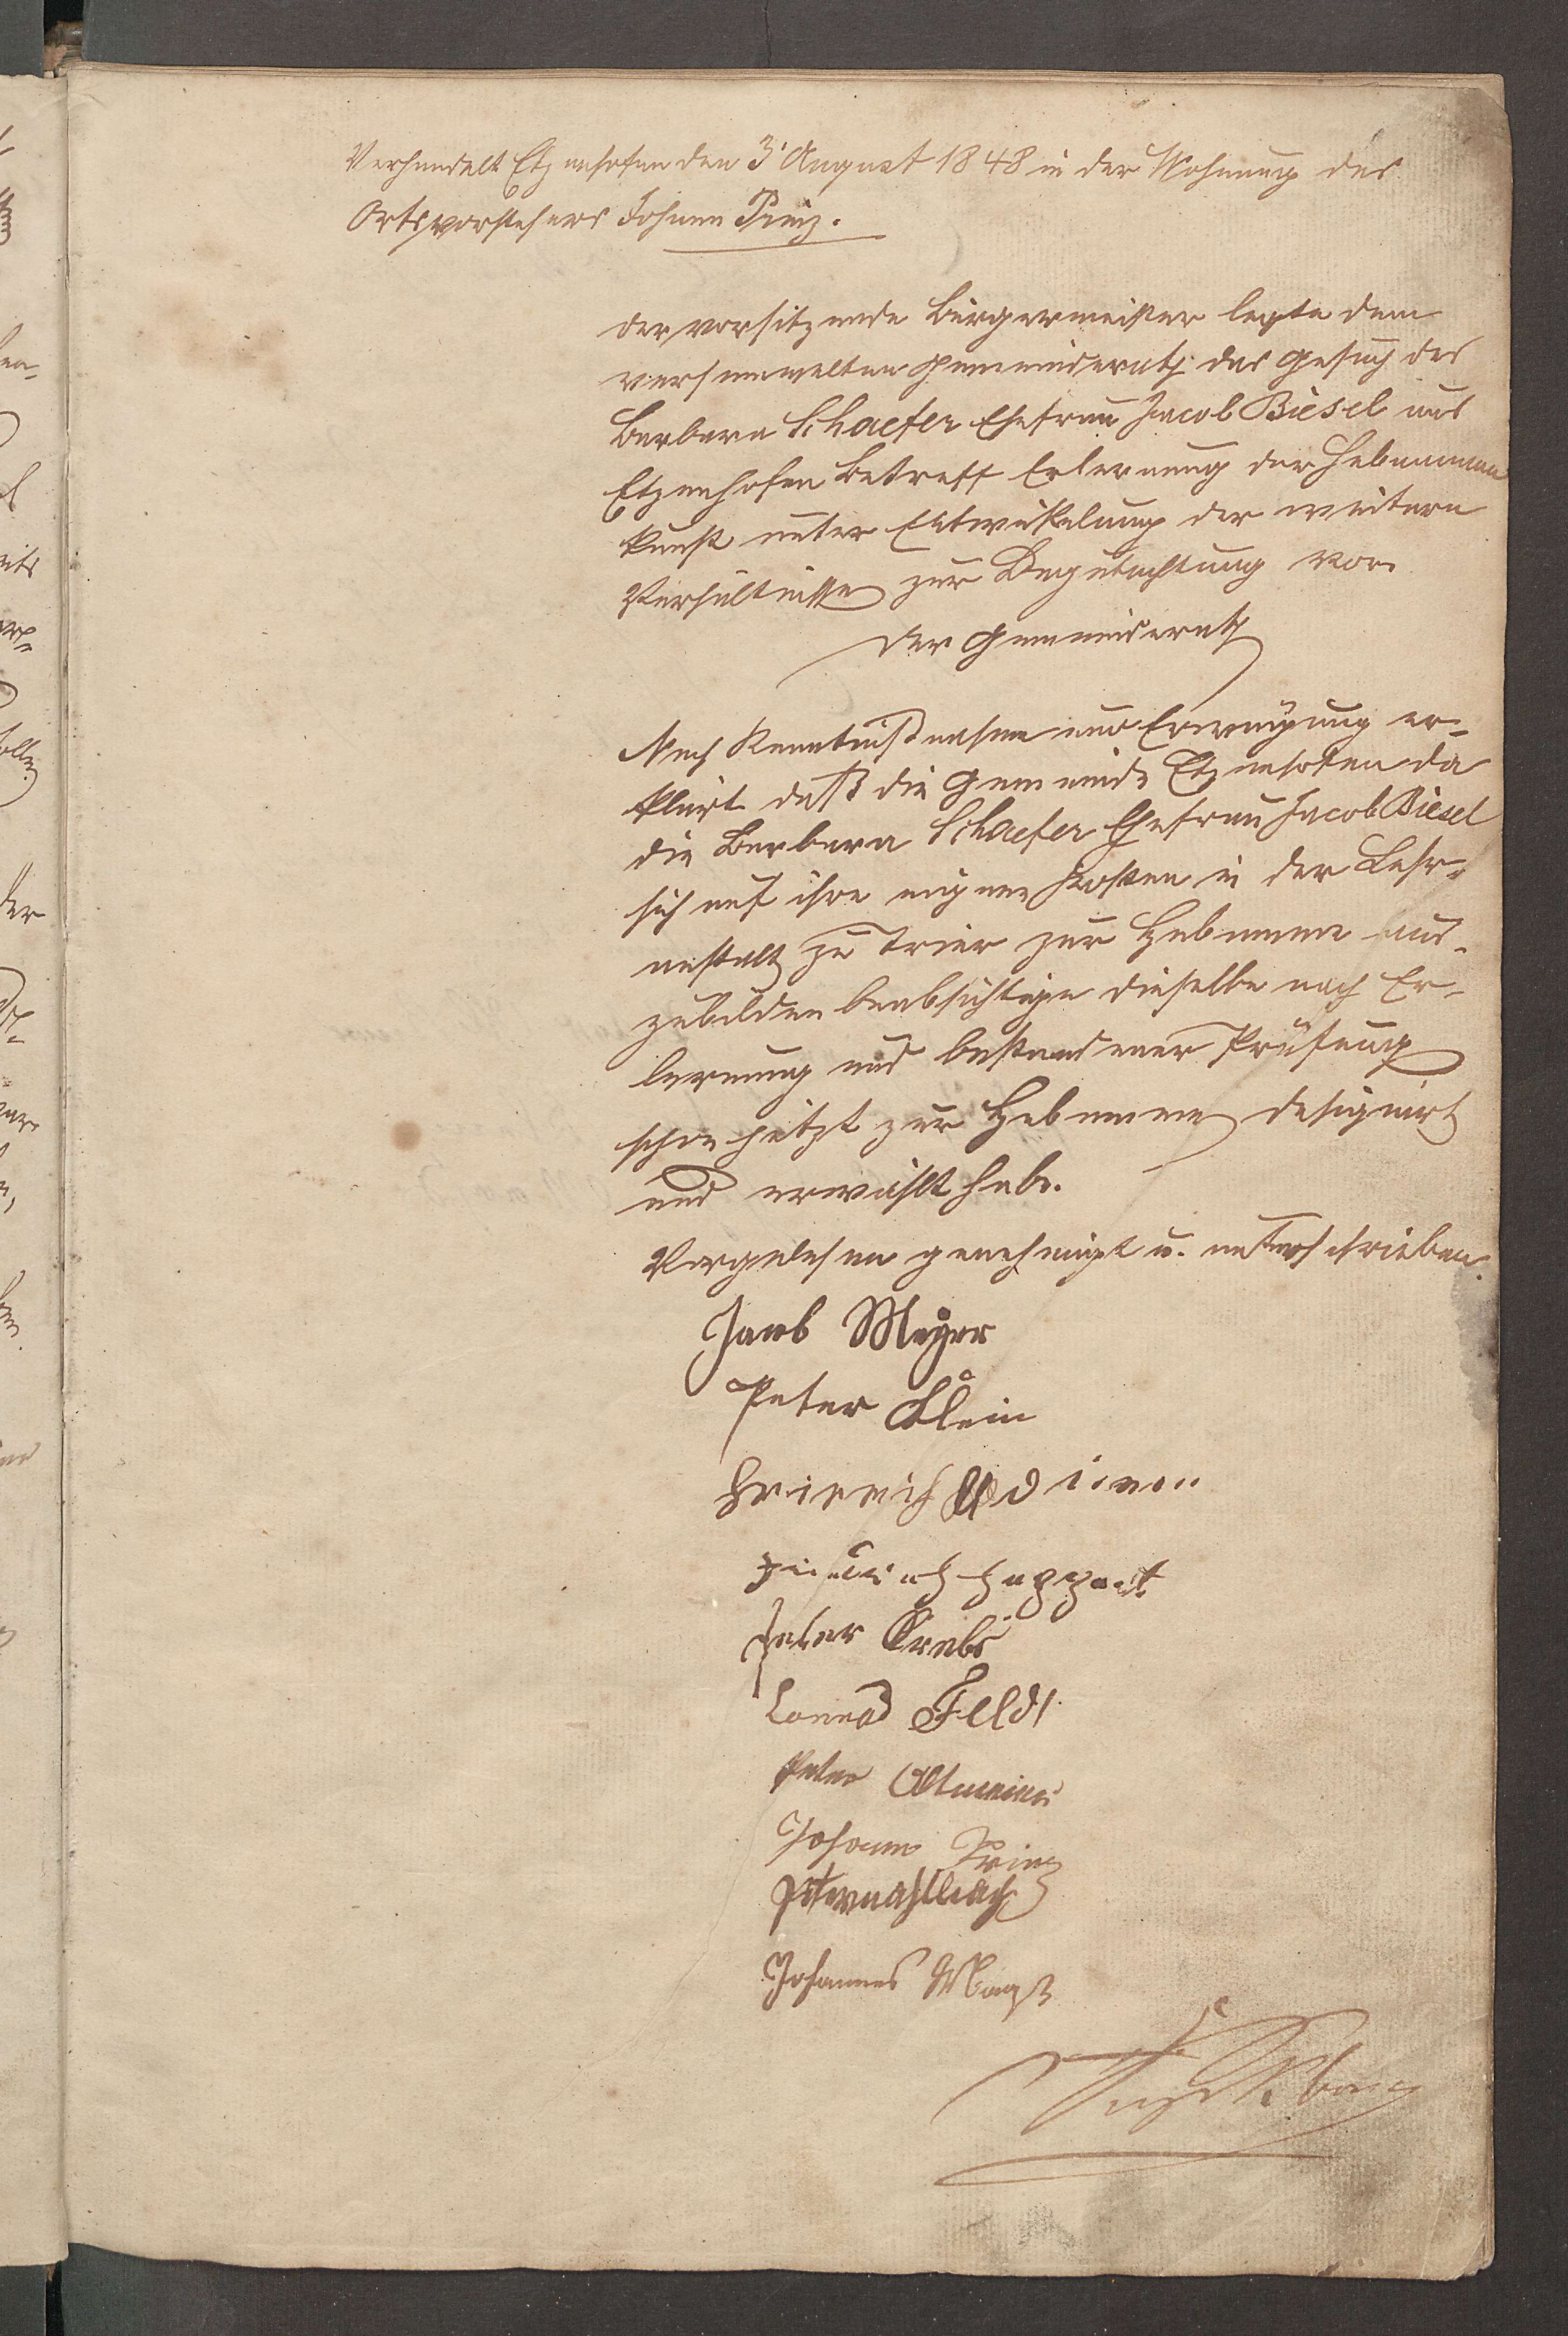 Verhandelt Etzenhofen den 3' August 1848 in der Wohnung des
Ortsvorstehers Johann Prinz.
der vorsitzende Bürgermeister legte dem
versammelten Gemeinderath das Gesuch der
Barbara Schaefer Ehefrau Jacob Biesel aus
Etzenhofen Betreff Erlernung der Hebammen
kunst unter Entwickelung der weitern
Verhältnisse zur Begutachtung vor.
der Gemeinderath
Nach Kenntnißnahme und Erwägung er-
klärt daß die Gemeinde Etzenhofen da
die Barbara Schaefer Ehefrau Jacob Biesel
sich auf ihre eigene Kosten in der Lehr-
anstalt zu Trier zur Hebamme aus-
zubilden beabsichtige dieselbe nach Er-
lernung und bestandener Prüfung
schon jetzt zur Hebamme designirt
und erwählt habe.
Vorgelesen genehmigt u. unterschrieben
Jacob Meyer
Peter Klein
Heinrich
Huppert
Peter Krebs
Conrad Feld
Peter Altmeier
Johann Prinz
Johannes